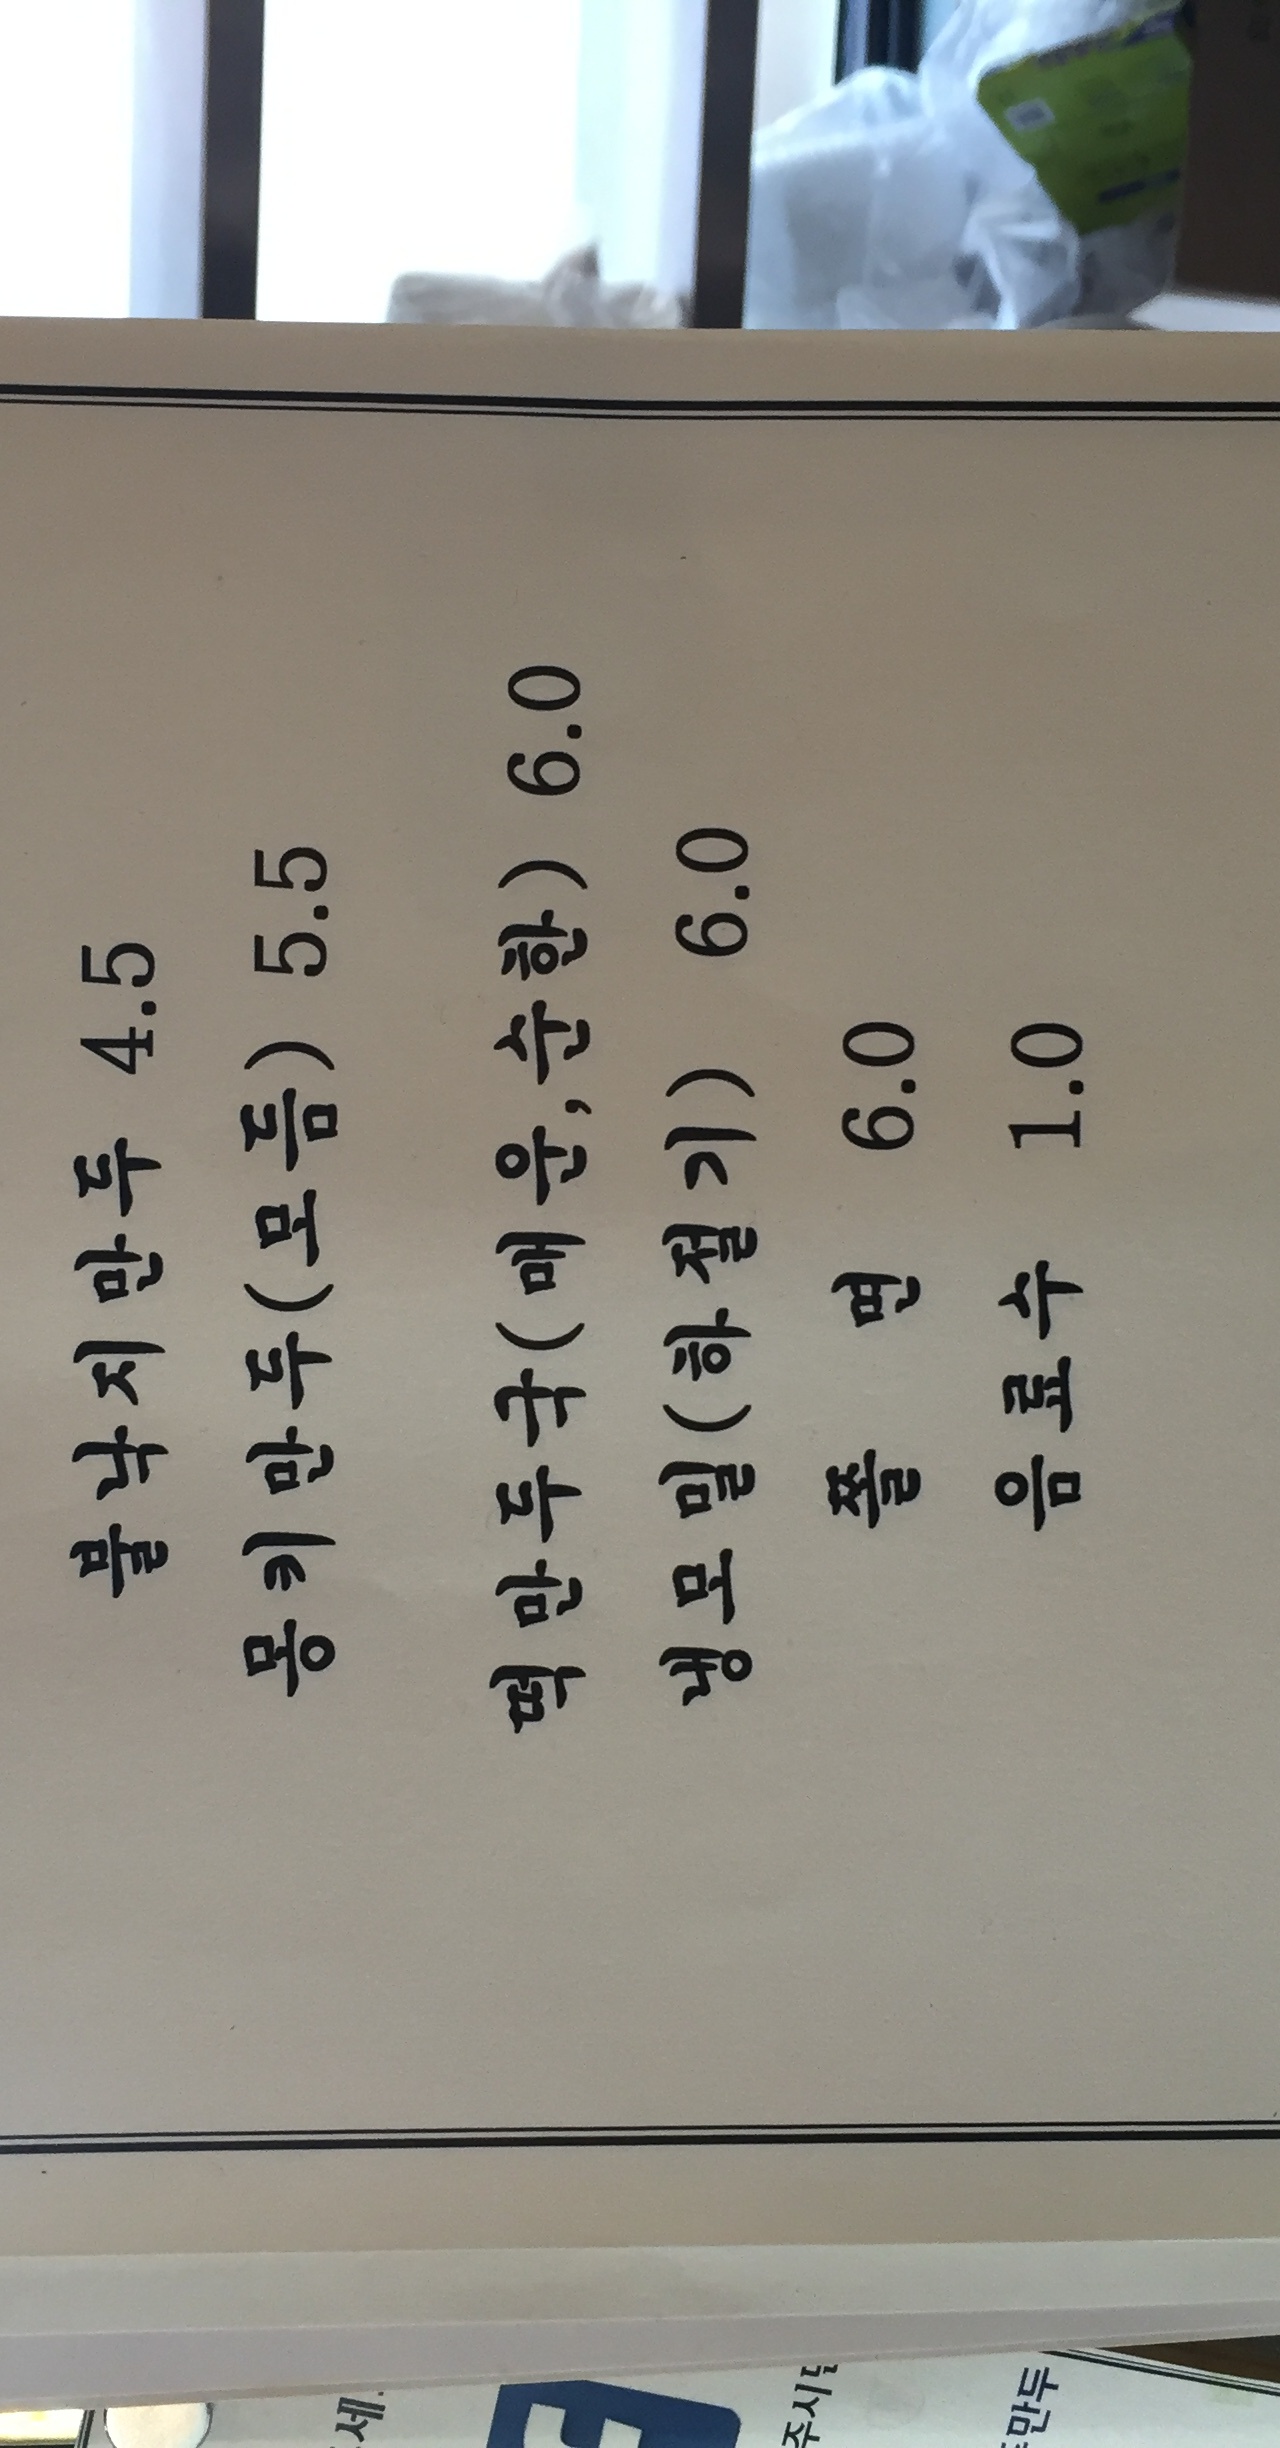 불낙지만두 4.5
몽키만두(모듬) 5.5
떡만두국(매운,순한) 6.0
냉모밀(하절기) 6.0
쫄 면 6.0
음료수 1.0
세
주시
만두